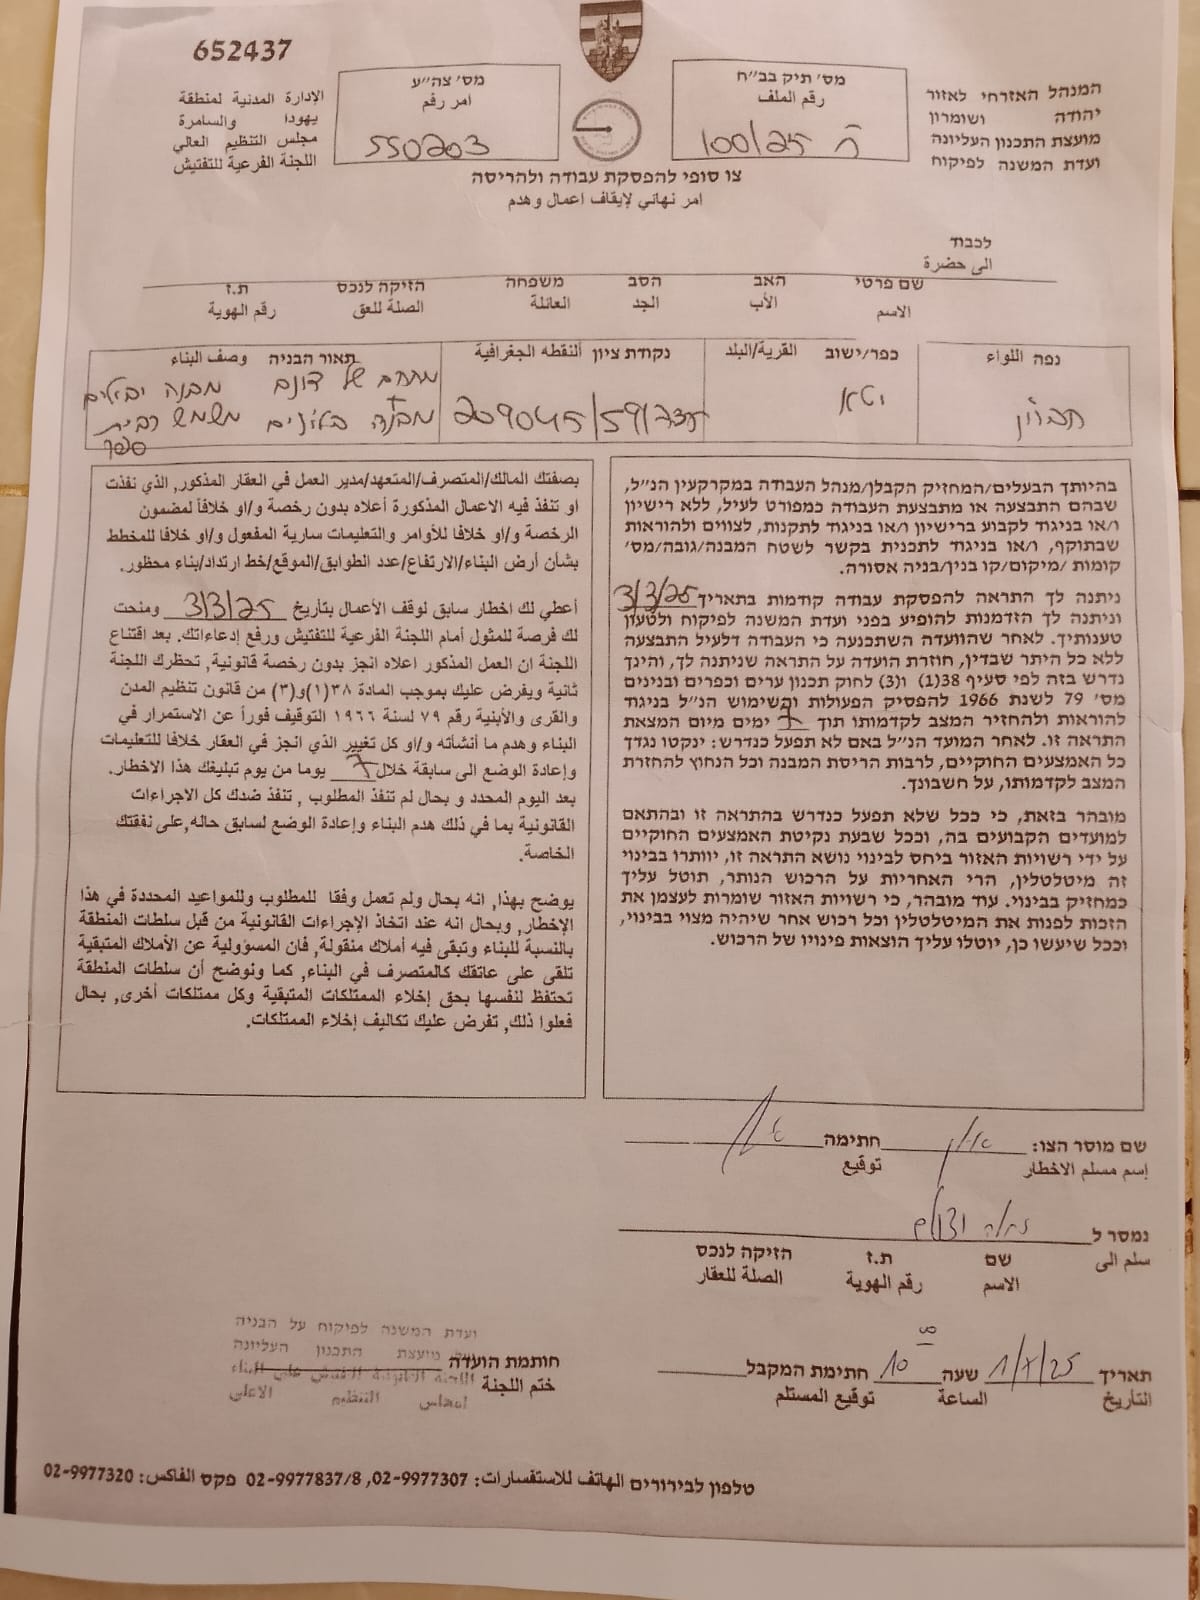 652437
המנהל האזרחי לאזור
יהודה ושומרון
מועצת התכנון העליונה
ועדת המשנה לפיקוח
מס׳ תיק בב״ח
رقم الملف
ח 100/25
מס׳ צה״ע
امر رقم
550203
الإدارة المدنية لمنطقة
يهودا والسامرة
مجلس التنظيم العالي
اللجنة الفرعية للتفتيش
צו סופי להפסקת עבודה ולהריסה
امر نهائي لإيقاف اعمال وهدم
לכבוד
الى حضرة
שם פרטי האב הסב משפחה הזיקה לנכס ת.ז
الاسم الأب الجد العائلة الصلة للعق رقم الهوية
נפה اللواء כפר/ישוב القرية/البلد נקודת ציון النقطه الجغرافية תאור הבניה وصف البناء
חברון יטא 209045/591735 מתחם של דונם מבנה יבילים
+ מבנה משמש כבית
ספר
בהיותך הבעלים/המחזיק הקבלן/מנהל העבודה במקרקעין הנ״ל,
שבהם התבצעה או מתבצעת העבודה כמפורט לעיל, ללא רישיון
ו/או בניגוד לקבוע ברישיון ו/או בניגוד לתקנות, לצווים ולהוראות
שבתוקף, ו/או בניגוד לתכנית בקשר לשטח המבנה/גובה/מס׳
קומות /מיקום/קו בנין/בניה אסורה.
ניתנה לך התראה להפסקת עבודה קודמות בתאריך 3/3/25
וניתנה לך הזדמנות להופיע בפני ועדת המשנה לפיקוח ולטעון
טענותיך. לאחר שהוועדה השתכנעה כי העבודה דלעיל התבצעה
ללא כל היתר שבדין, חוזרת הועדה על התראה שניתנה לך, והינך
נדרש בזה לפי סעיף 38(1) ו(3) לחוק תכנון ערים וכפרים ובנינים
מס׳ 79 לשנת 1966 להפסיק הפעולות והשימוש הנ״ל בניגוד
להוראות ולהחזיר המצב לקדמותו תוך 7 ימים מיום המצאת
התראה זו. לאחר המועד הנ״ל באם לא תפעל כנדרש: ינקטו נגדך
כל האמצעים החוקיים, לרבות הריסת המבנה וכל הנחוץ להחזרת
המצב לקדמותו, על חשבונך.
מובהר בזאת, כי ככל שלא תפעל כנדרש בהתראה זו ובהתאם
למועדים הקבועים בה, וככל שבעת נקיטת האמצעים החוקיים
על ידי רשויות האזור ביחס לבינוי נושא התראה זו, יוותרו בבינוי
זה מיטלטלין, הרי האחריות על הרכוש הנותר, תוטל עליך
כמחזיק בבינוי. עוד מובהר, כי רשויות האזור שומרות לעצמן את
הזכות לפנות את המיטלטלין וכל רכוש אחר שיהיה מצוי בבינוי,
וככל שיעשו כן, יוטלו עליך הוצאות פינויו של הרכוש.
بصفتك المالك/المتصرف/المتعهد/مدير العمل في العقار المذكور, الذي نفذت
او تنفذ فيه الاعمال المذكورة أعلاه بدون رخصة و/او خلافاً لمضمون
الرخصة و/او خلافا للأوامر والتعليمات سارية المفعول و/او خلافا للمخطط
بشأن أرض البناء/الارتفاع/عدد الطوابق/الموقع/خط ارتداد/بناء محظور.
أعطي لك اخطار سابق لوقف الأعمال بتأريخ 3/3/25 ومنحت
لك فرصة للمثول أمام اللجنة الفرعية للتفتيش ورفع إدعاءاتك. بعد اقتناع
اللجنة ان العمل المذكور اعلاه انجز بدون رخصة قانونية, تحظرك اللجنة
ثانية ويفرض عليك بموجب المادة ٣٨(١)و(٣) من قانون تنظيم المدن
والقرى والأبنية رقم ٧٩ لسنة ١٩٦٦ التوقيف فوراً عن الاستمرار في
البناء وهدم ما أنشأته و/او كل تغيير الذي انجز في العقار خلافا للتعليمات
وإعادة الوضع الى سابقة خلال 7 يوما من يوم تبليغك هذا الاخطار.
بعد اليوم المحدد و بحال لم تنفذ المطلوب , تنفذ ضدك كل الاجراءات
القانونية بما في ذلك هدم البناء وإعادة الوضع لسابق حاله,على نفقتك
الخاصة.
يوضح بهذا, انه بحال ولم تعمل وفقا للمطلوب وللمواعيد المحددة في هذا
الإخطار, وبحال انه عند اتخاذ الإجراءات القانونية من قبل سلطات المنطقة
بالنسبة للبناء وتبقى فيه أملاك منقولة, فان المسؤولية عن الأملاك المتبقية
تلقى على عاتقك كالمتصرف في البناء, كما ونوضح أن سلطات المنطقة
تحتفظ لنفسها بحق إخلاء الممتلكات المتبقية وكل ممتلكات أخرى, بحال
فعلوا ذلك, تفرض عليك تكاليف إخلاء الممتلكات.
שם מוסר הצו: חתימה
إسم مسلم الاخطار توقيع
נמסר ל
سلم الى
שם ת.ז הזיקה לנכס
الاسم رقم الهوية الصلة للعقار
תאריך 1/7/25 שעה 10 00 חתימת המקבל
التأريخ الساعة توقيع المستلم
חותמת הועדה
ختم اللجنة
ועדת המשנה לפיקוח על הבניה
מועצת התכנון העליונה
اللجنة الثانوية للتفتيش على البناء
لمجلس التنظيم الاعلى
טלפון לבירורים الهاتف للاستفسارات: 02-9977307, 02-9977837/8 פקס الفاكس: 02-9977320